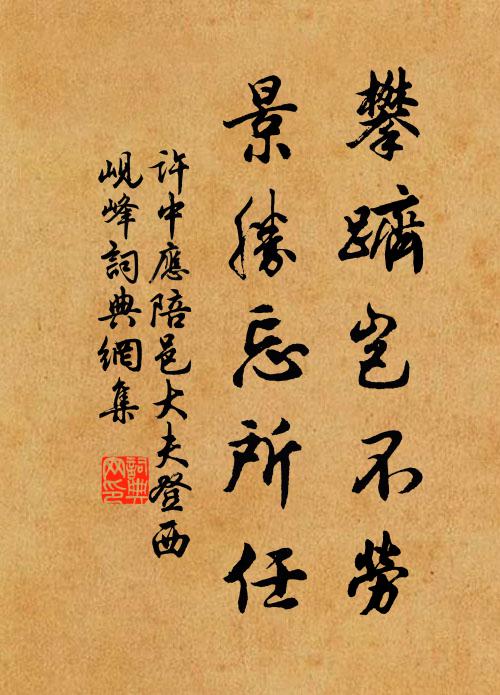 攀躋豈不勞
景勝忘所任
許中應陪邑大夫登西
峴峰詞典網集
詞典
网印